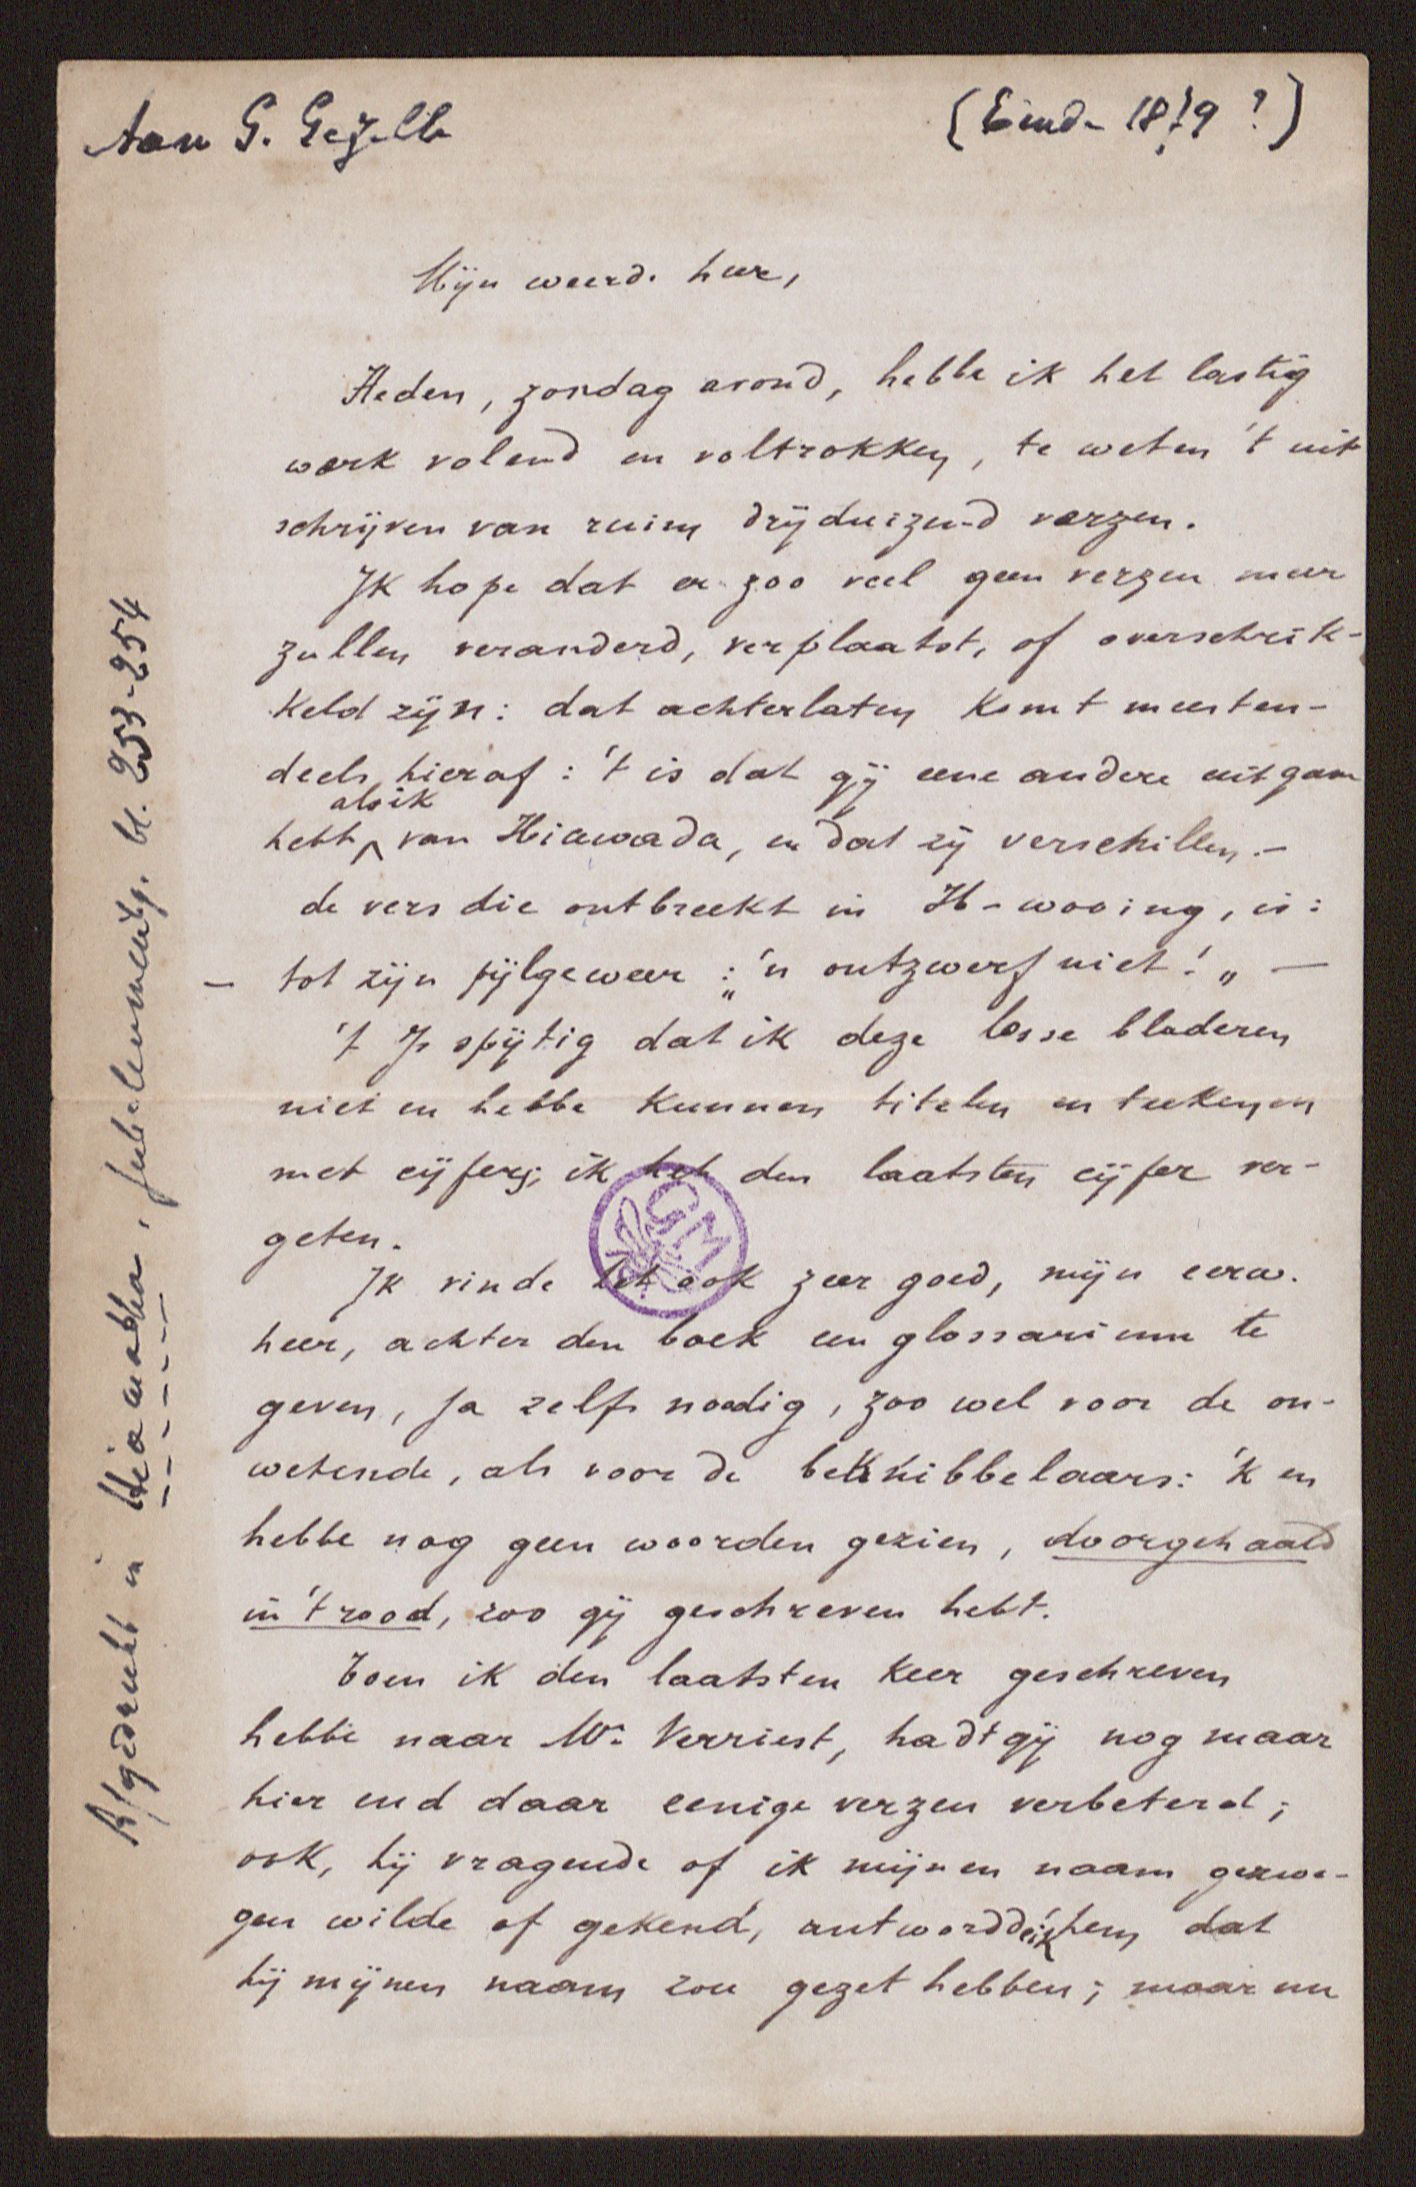 Aan G. Gezelle
(Einde 1879?)
Mijn weerde heer,
Heden, zondag avond, hebbe ik het lastig
werk volend en voltrokken, te weten 't uit
schrijven van ruim drijduizend verzen.
Ik hope dat er zoo veel geen verzen meer
zullen veranderd, verplaatst, of overschrik-
keld zijn: dat achterlaten komt meesten-
deels hieraf: 't is dat gij eene andere uitgave
als ik
hebt van Hiawada, en dat zij verschillen.-
de vers die ontbreekt in H-wooing, is:
- tot zijn pijlgeweer: „'n ontzwerf niet!„ -
't Is spijtig dat ik deze losse bladeren
niet en hebbe kunnen titelen en teekenen
met cijfers; ik heb den laatsten cijfer ver-
geten.
GM
Ik vinde het ook zeer goed, mijn eerw.
heer, achter den boek een glossarium te
geven, ja zelfs noodig, zoo wel voor de on-
wetende, als voor de beknibbelaars: 'k en
hebbe nog geen woorden gezien, doorgehaald
in 't rood, zoo gij geschreven hebt.
Toen ik den laatsten keer geschreven
hebbe naar Mr. Verriest, hadt gij nog maar
hier end daar eenige verzen verbeterd;
ook, hij vragende of ik mijnen naam gezwe-
gen wilde of gekend, antwoordde ik hem dat
hij mijnen naam zou gezet hebben; maar nu
Afgedrukt in Hiawatha, Jubileumuitg. bl. 253-254